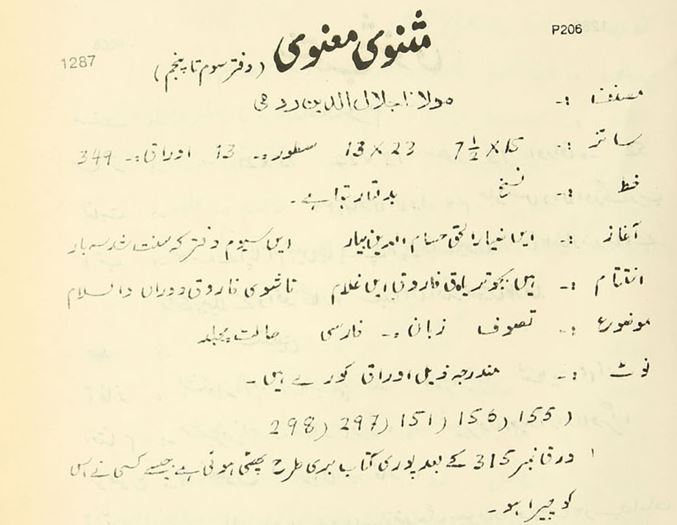 P206
مثنوی معنوی
1287
(دفتر سوم تا پنجم)
مصنف :- مولانا جلال الدین رومی
سائز :- 7½ X 15 13 X 23 سطور :- 13 اوراق :- 349
خط :- نسخ
آغاز :- این ضیاءالحق حسام الدین بیار این سیوم دفتر که سنت شد سه بار
اختتام :- فاروق این غلام تا شوی فاروق دوران والسلام
موضوع :- تصوف زبان :- فارسی حالت مجلد
نوٹ :- مندرجہ ذیل اوراق کورے ہیں -
155) 156) 151) 297) 298
ورق نمبر 315 کے بعد پوری کتاب بری طرح پھٹی ہوئی ہے جیسے کسی نے اس
کو چیرا ہو -